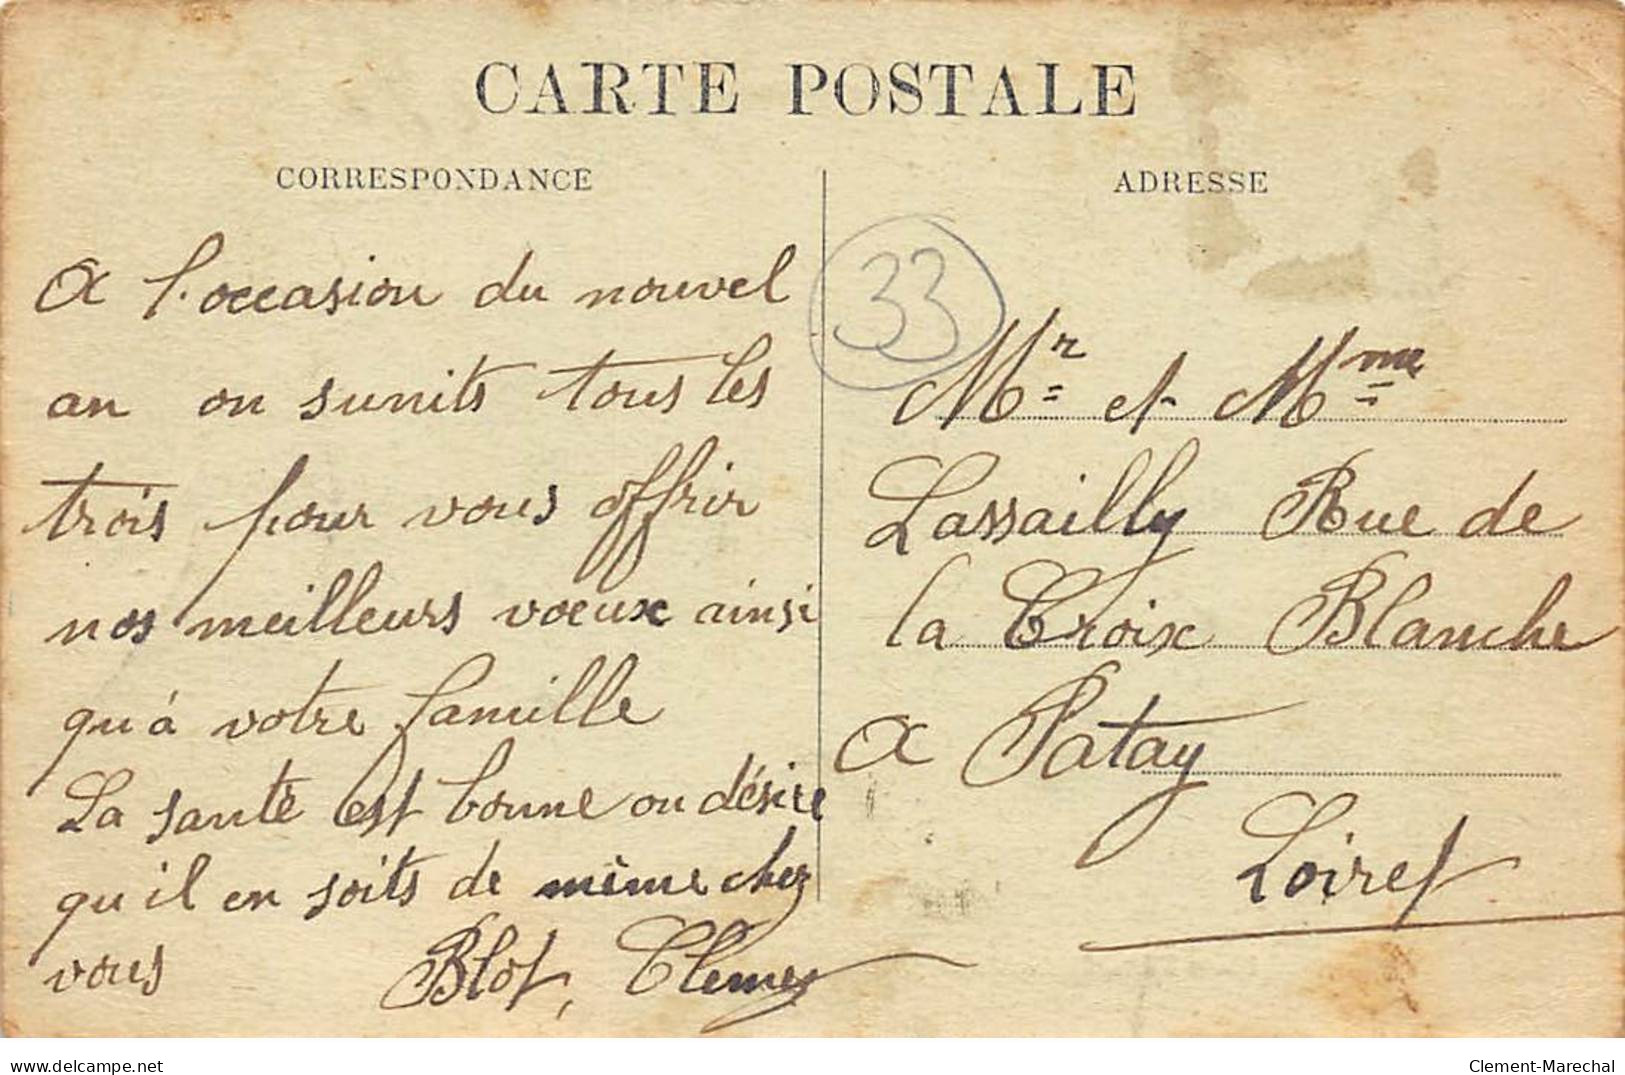 CARTE POSTALE
CORRESPONDANCE
A l'occasion du nouvel
an on sunits tous les
trois pour vous offrir
nos meilleurs voeux ainsi
qu'à votre famille
La santé est bonne on désire
qu'il en soits de même chez
vous Blot,
ADRESSE
33
Mr et Mme
Lassailly Rue de
la Croix Blanche
a Patay
Loiret
delcampe.net
Clement-Marechal